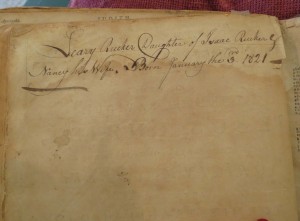 Rucker Daughter of Isaac Rucker &
Nancy his Wife, Born January the 3rd 1821